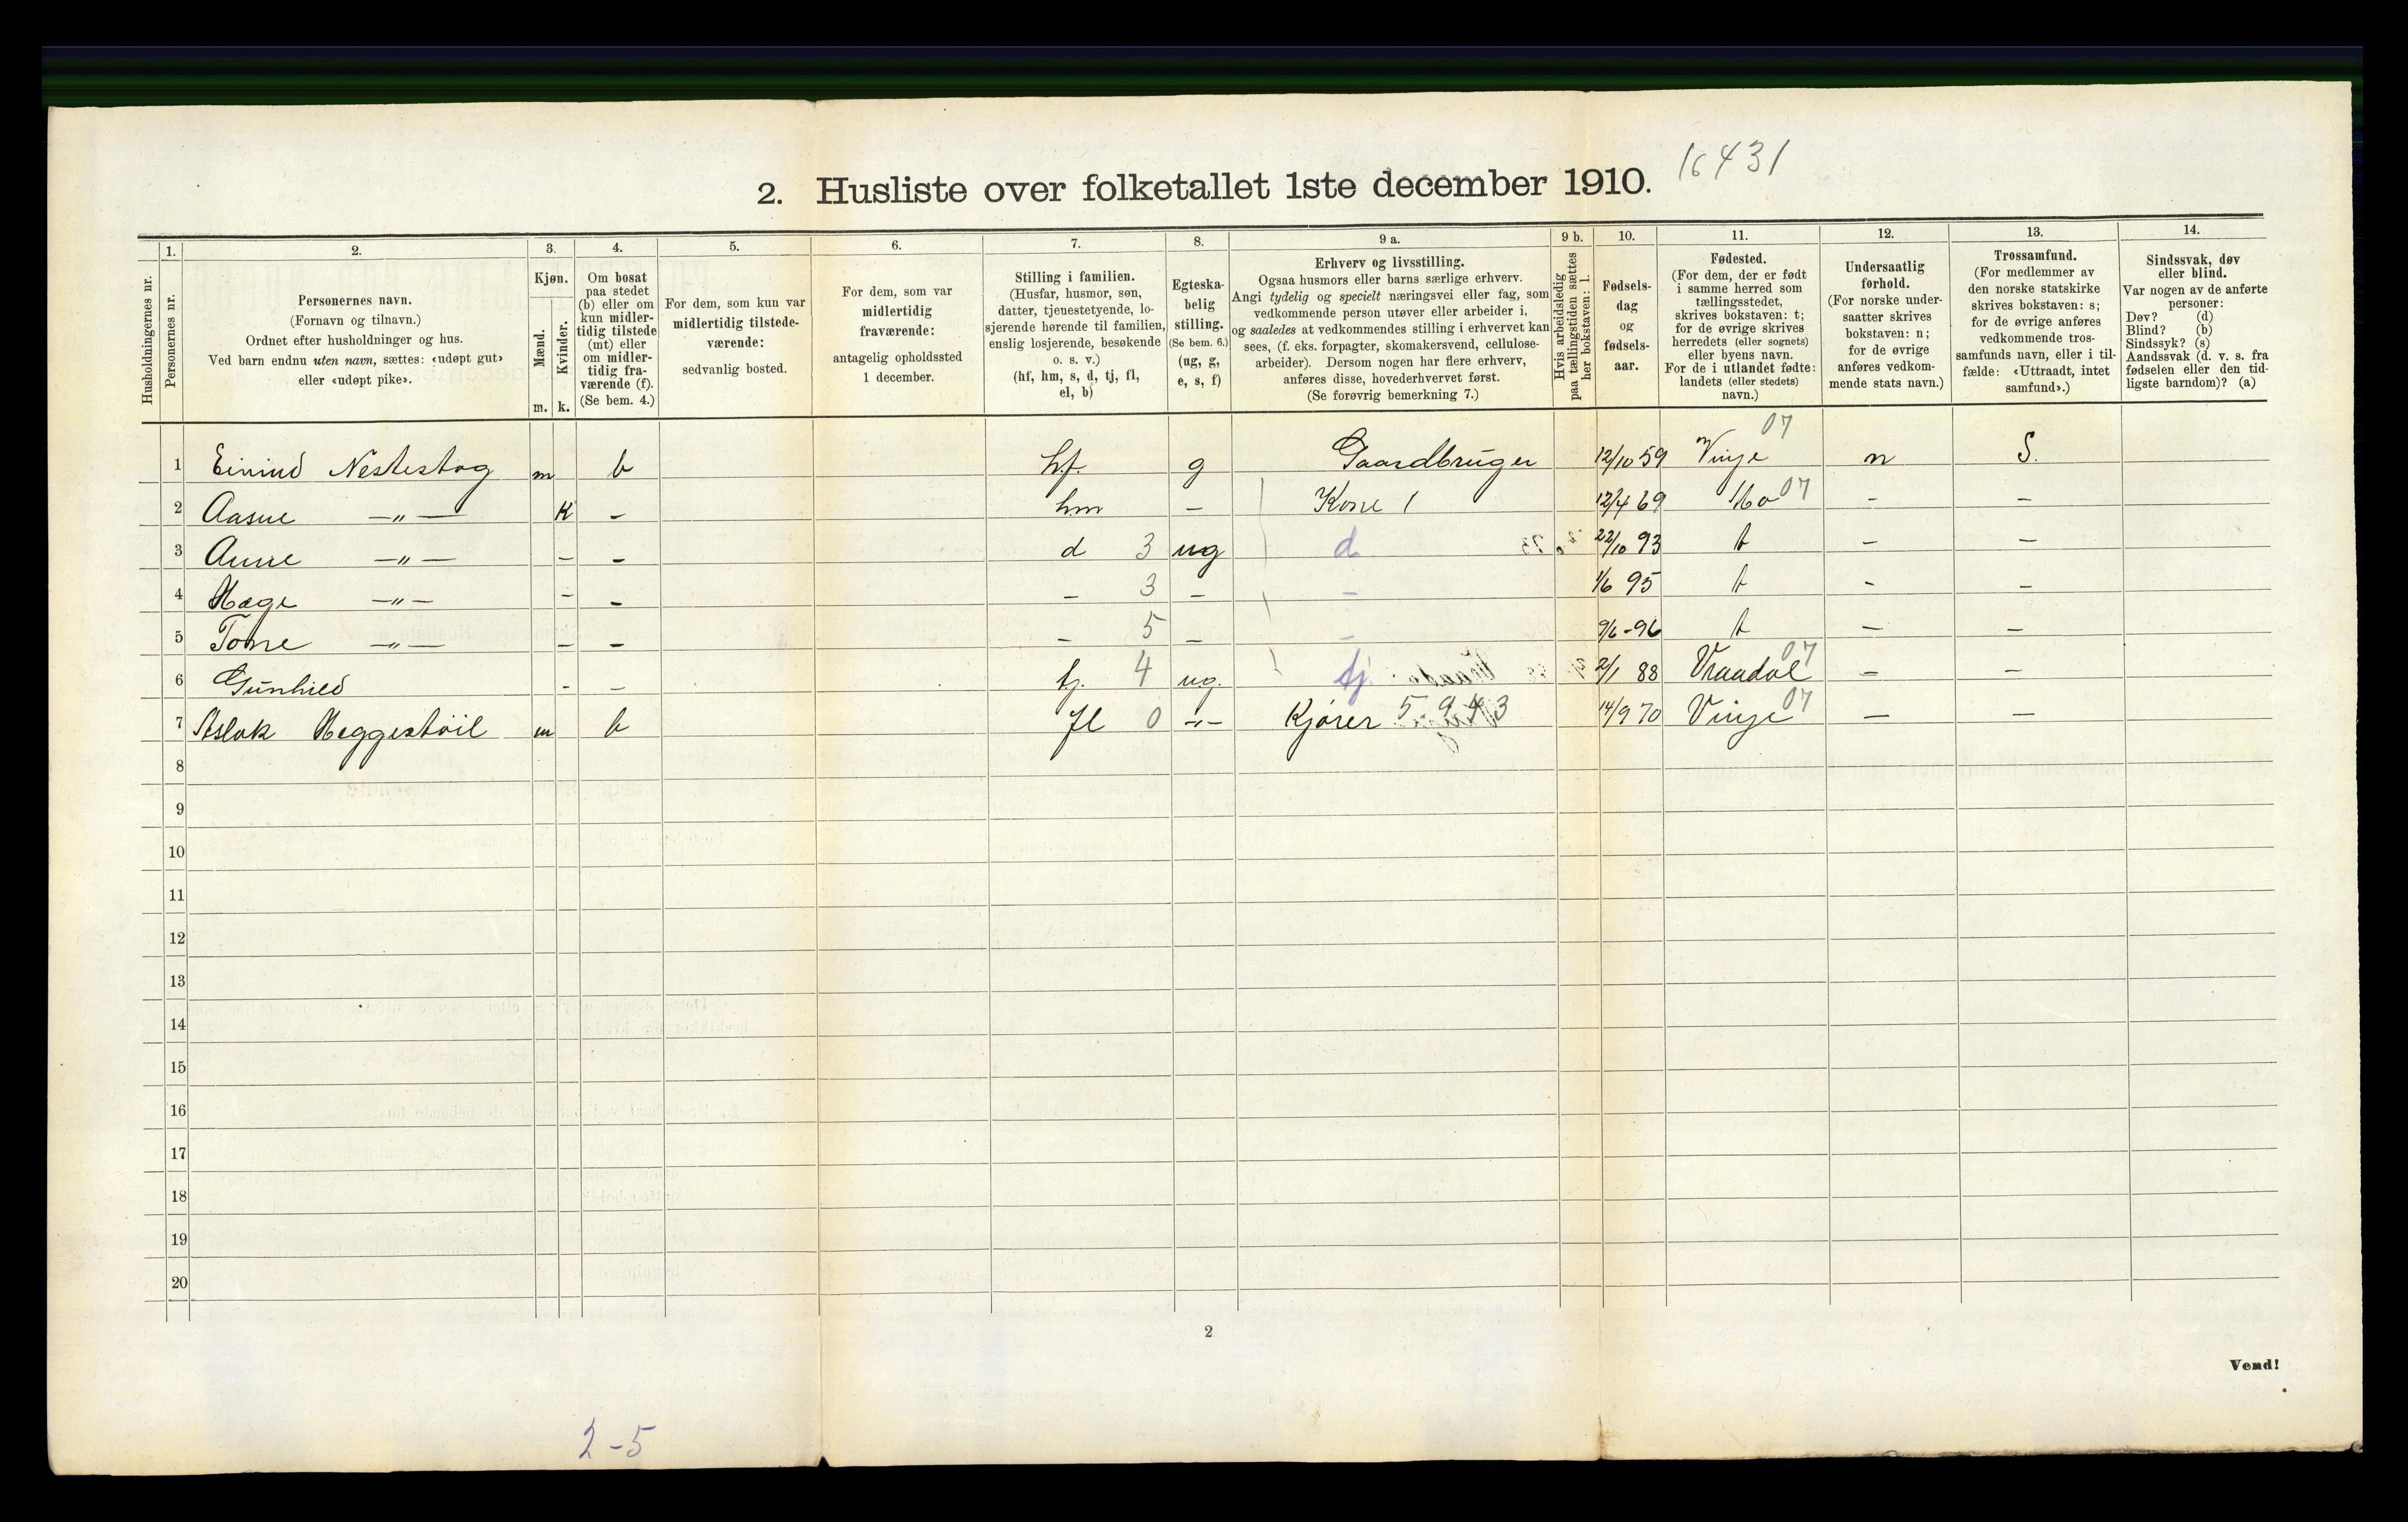 16431
2. Husliste over folketallet 1ste december 1910.
Husholdningernes nr.
1.
Personernes nr.
2.
Personernes navn.
(Fornavn og tilnavn.)
Ordnet efter husholdninger og hus.
Ved barn endnu uten navn, sættes: «udøpt gut»
eller «udøpt pike».
3.
Kjøn.
Mænd.
Kvinder.
m. k.
4.
Om bosat
paa stedet
(b) eller om
kun midler-
tidig tilstede
(mt) eller
om midler-
tidig fra-
værende (f).
(Se bem. 4.)
5.
For dem, som kun var
midlertidig tilstede-
værende:
sedvanlig bosted.
6.
For dem, som var
midlertidig
fraværende:
antagelig opholdssted
1 december.
7.
Stilling i familien.
(Husfar, husmor, søn,
datter, tjenestetyende, lo-
sjerende hørende til familien,
enslig losjerende, besøkende
o. s. v.)
(hf, hm, s, d, tj, fl,
el, b)
8.
Egteska-
belig
stilling.
(Se bem. 6.)
(ug, g,
e, s, f)
9 a.
Erhverv og livsstilling.
Ogsaa husmors eller barns særlige erhverv.
Angi tydelig og specielt næringsvei eller fag, som
vedkommende person utøver eller arbeider i,
og saaledes at vedkommendes stilling i erhvervet kan
sees, (f. eks. forpagter, skomakersvend, cellulose-
arbeider). Dersom nogen har flere erhverv,
anføres disse, hovederhvervet først.
(Se forøvrig bemerkning 7.)
9 b.
Hvis arbeidsledig
paa tællingstiden sættes
her bokstaven: l.
10.
Fødsels-
dag
og
fødsels-
aar.
11.
Fødested.
(For dem, der er født
i samme herred som
tællingsstedet,
skrives bokstaven: t;
for de øvrige skrives
herredets (eller sognets)
eller byens navn.
For de i utlandet fødte:
landets (eller stedets)
navn.)
12.
Undersaatlig
forhold.
(For norske under-
saatter skrives
bokstaven: n;
for de øvrige
anføres vedkom-
mende stats navn.)
13.
Trossamfund.
(For medlemmer av
den norske statskirke
skrives bokstaven: s;
for de øvrige anføres
vedkommende tros-
samfunds navn, eller i til-
fælde: «Uttraadt, intet
samfund».)
14.
Sindssvak, døv
eller blind.
Var nogen av de anførte
personer:
Døv? (d)
Blind? (b)
Sindssyk? (s)
Aandssvak (d. v. s. fra
fødselen eller den tid-
ligste barndom)? (a)
07
1 Eivind Nestestog m b hf. g Gaardbruger 12/10 59 Vinje n S.
2 Aasne -"- K - hm - Kone 1 12/4 69 Mo 07 - -
3 Anne -"- - - d 3 ug d 22/10 93 t - -
4 Hæge -"- - - - 3 - - 1/6 95 t - -
5 Tone -"- - - - 5 - - 9/6-96 t - -
6 Gunhild - - tj. 4 ug. tj 2/1 88 Vraadal 07 - -
7 Aslak Heggestöil m b fl 0 -"- Kjører 5943 14/9 70 Vinje 07 - -
8
9
10
11
12
13
14
15
16
17
18
19
20
2
Vend!
2-5